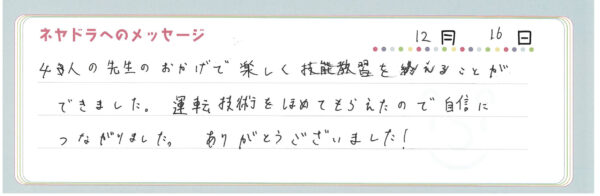 ネヤドラへのメッセージ
12月 16日
4人の先生のおかげで楽しく技能教習を終えることが
できました。運転技術をほめてもらえたので自信に
つながりました。ありがとうございました!